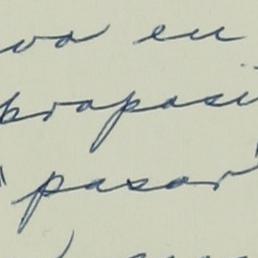 va en
proposi
"pasar"